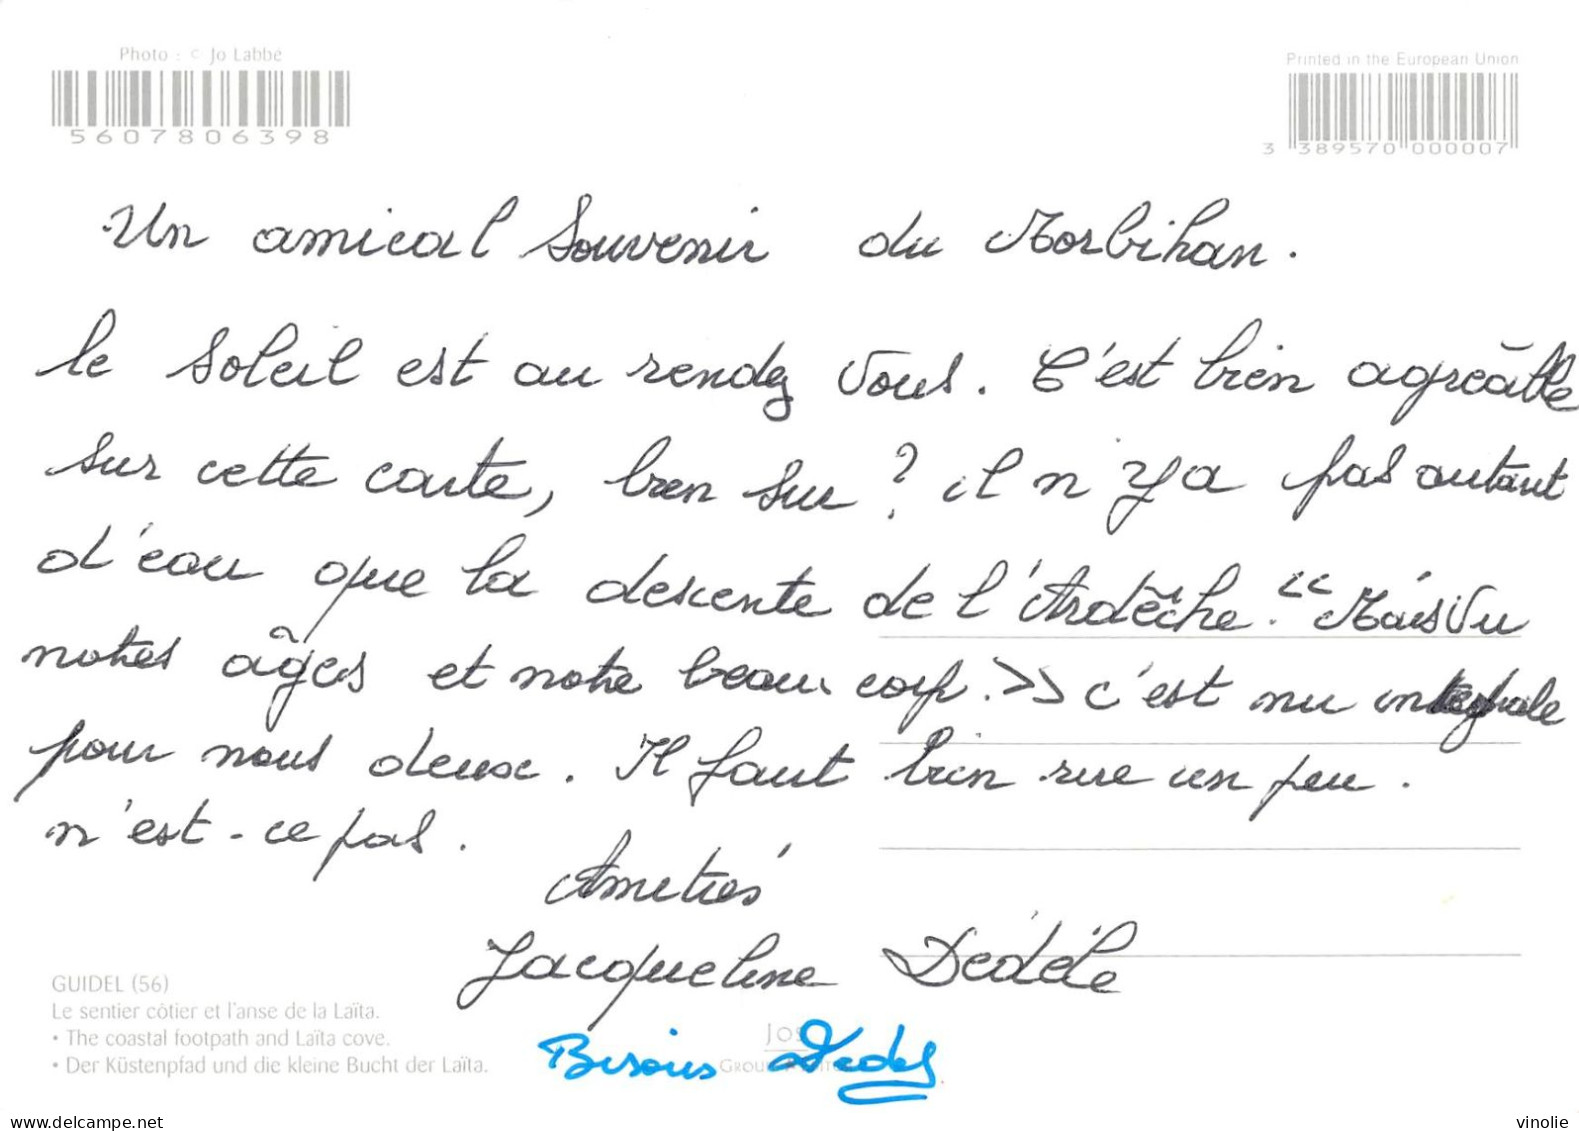 Photo : © Jo Labbé
5607806398
Printed in the European Union
3 389570 000007
Un amical Souvenir du Morbihan.
le soleil est au rendez vous. C'est bien agréable
sur cette carte, bien sur ? il n'y a pas autant
d'eau que la descente de l'Ardèche. " Mais Vu
notres âges et notre beau corp. >> c'est nu integrale
pour nous deux. Il faut bien rire un peu.
n'est-ce pas.
Amitiés
Jacqueline Dédéle
Bisous Dedel
GUIDEL (56)
Le sentier côtier et l'anse de la Laïta.
• The coastal footpath and Laïta cove.
• Der Küstenpfad und die kleine Bucht der Laïta.
JOS
www.delcampe.net
vinolie